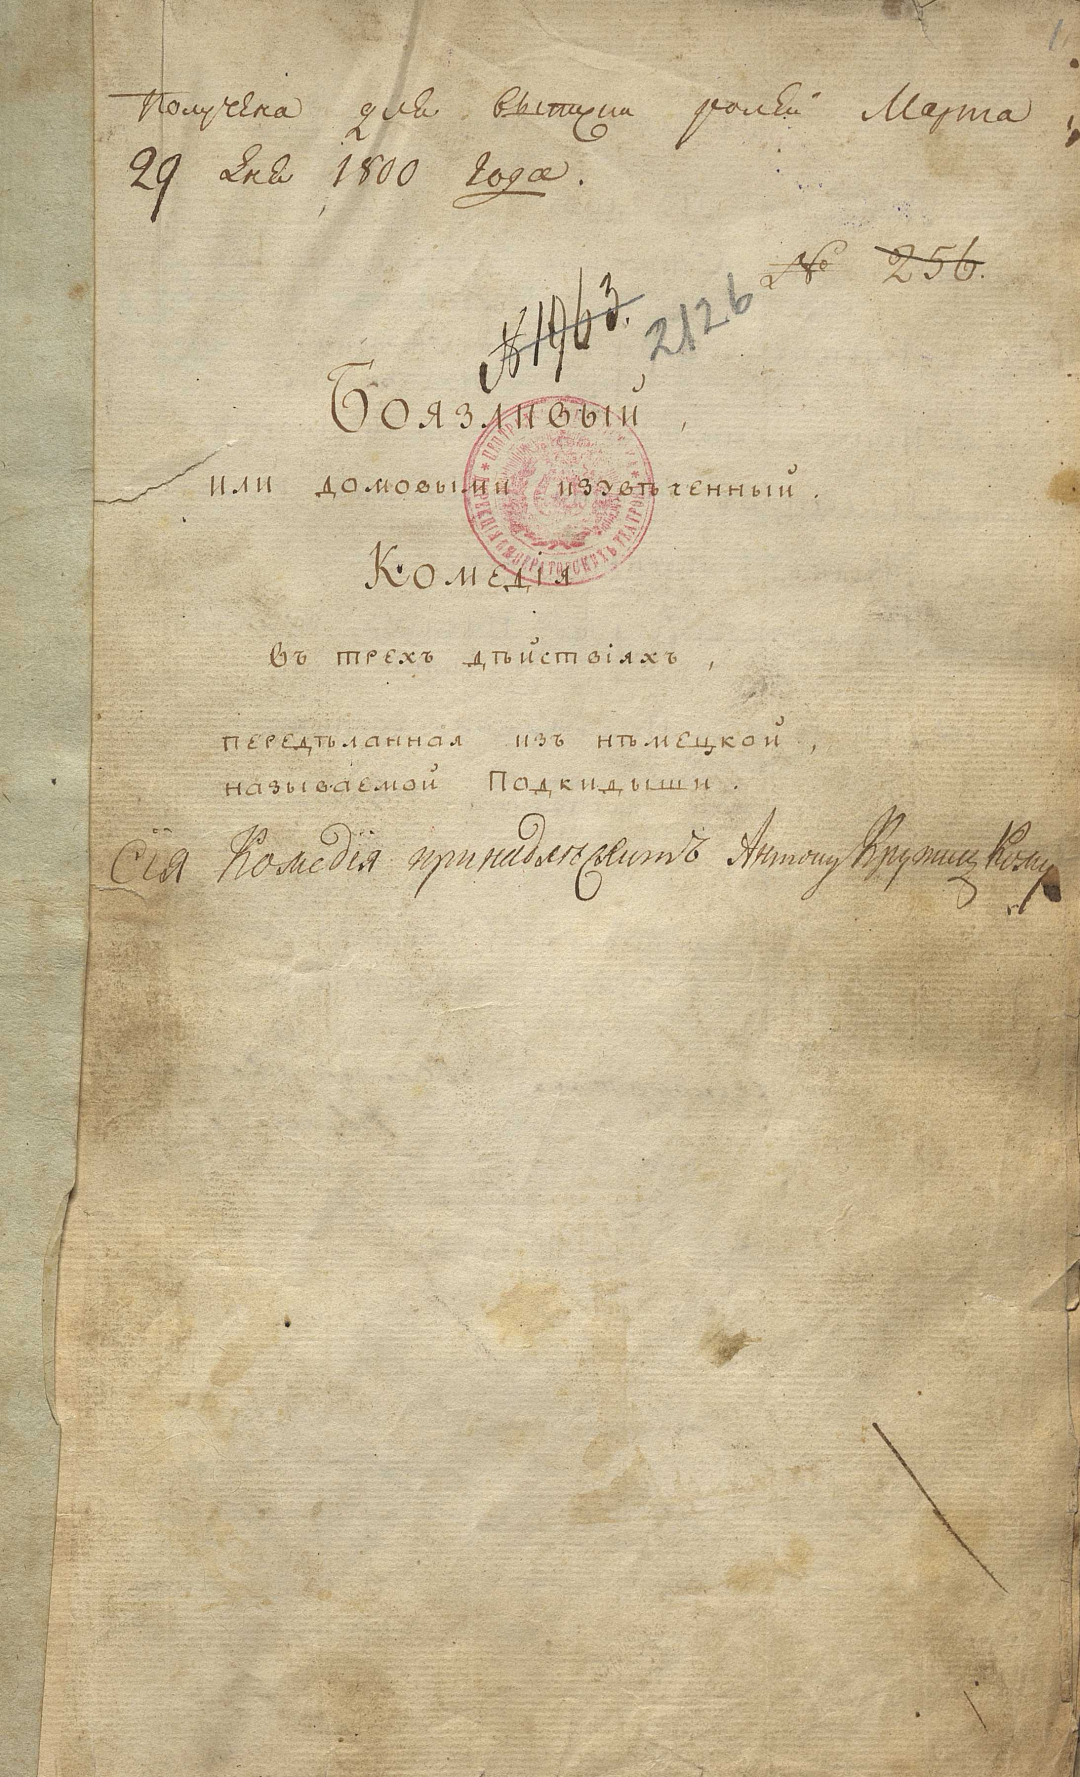 1
Получена для выписки ролей Марта
29 дня 1800 года.
№ 256.
№ 1963.
2126
Боязливый,
или домовыми изувѣченный.
Комедія
въ трехъ дѣйствіяхъ,
передѣланная изъ нѣмецкой,
называемой Подкидыши.
Сія Комедія принадлѣжитъ Антону Крутицкому